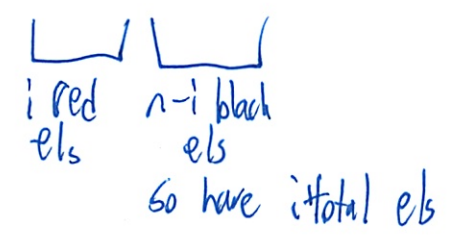 i red
els
n-i black
els
so have total els